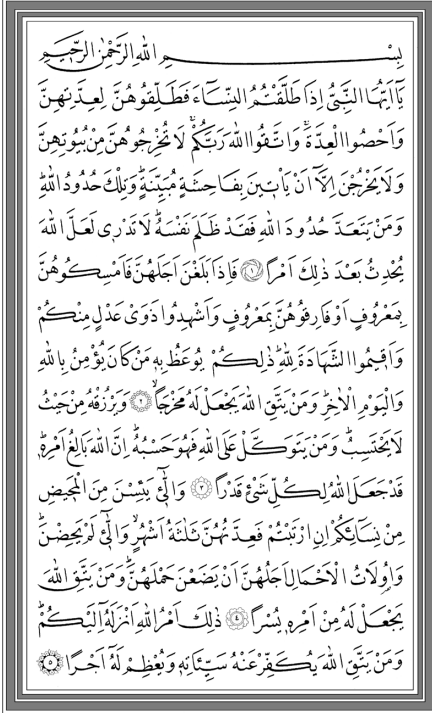 بِسْمِ اللهِ الرَّحْمٰنِ الرَّحٖيمِ
يَٓا اَيُّهَا النَّبِيُّ اِذَا طَلَّقْتُمُ النِّسَٓاءَ فَطَلِّقُوهُنَّ لِعِدَّتِهِنَّ
وَاَحْصُوا الْعِدَّةَۚ وَاتَّقُوا اللهَ رَبَّكُمْۚ لَا تُخْرِجُوهُنَّ مِنْ بُيُوتِهِنَّ
وَلَا يَخْرُجْنَ اِلَّٓا اَنْ يَاْتٖينَ بِفَاحِشَةٍ مُبَيِّنَةٍۜ وَتِلْكَ حُدُودُ اللهِۜ
وَمَنْ يَتَعَدَّ حُدُودَ اللهِ فَقَدْ ظَلَمَ نَفْسَهُۜ لَا تَدْرٖى لَعَلَّ اللهَ
يُحْدِثُ بَعْدَ ذٰلِكَ اَمْرًا ﴿١﴾ فَاِذَا بَلَغْنَ اَجَلَهُنَّ فَاَمْسِكُوهُنَّ
بِمَعْرُوفٍ اَوْ فَارِقُوهُنَّ بِمَعْرُوفٍ وَاَشْهِدُوا ذَوَىْ عَدْلٍ مِنْكُمْ
وَاَقٖيمُوا الشَّهَادَةَ لِلّٰهِۜ ذٰلِكُمْ يُوعَظُ بِهٖ مَنْ كَانَ يُؤْمِنُ بِاللهِ
وَالْيَوْمِ الْاٰخِرِۜ وَمَنْ يَتَّقِ اللهَ يَجْعَلْ لَهُ مَخْرَجًاۙ ﴿٢﴾ وَيَرْزُقْهُ مِنْ حَيْثُ
لَا يَحْتَسِبُۜ وَمَنْ يَتَوَكَّلْ عَلَى اللهِ فَهُوَ حَسْبُهُۜ اِنَّ اللهَ بَالِغُ اَمْرِهٖۜ
قَدْ جَعَلَ اللهُ لِكُلِّ شَىْءٍ قَدْرًا ﴿٣﴾ وَالّٰٓـٖٔى يَئِسْنَ مِنَ الْمَحٖيضِ
مِنْ نِسَٓائِكُمْ اِنِ ارْتَبْتُمْ فَعِدَّتُهُنَّ ثَلٰثَةُ اَشْهُرٍۙ وَالّٰٓـٖٔى لَمْ يَحِضْنَۜ
وَاُولَاتُ الْاَحْمَالِ اَجَلُهُنَّ اَنْ يَضَعْنَ حَمْلَهُنَّۜ وَمَنْ يَتَّقِ اللهَ
يَجْعَلْ لَهُ مِنْ اَمْرِهٖ يُسْرًا ﴿٤﴾ ذٰلِكَ اَمْرُ اللهِ اَنْزَلَهُٓ اِلَيْكُمْۜ
وَمَنْ يَتَّقِ اللهَ يُكَفِّرْ عَنْهُ سَيِّـَٔاتِهٖ وَيُعْظِمْ لَهُٓ اَجْرًا ﴿٥﴾